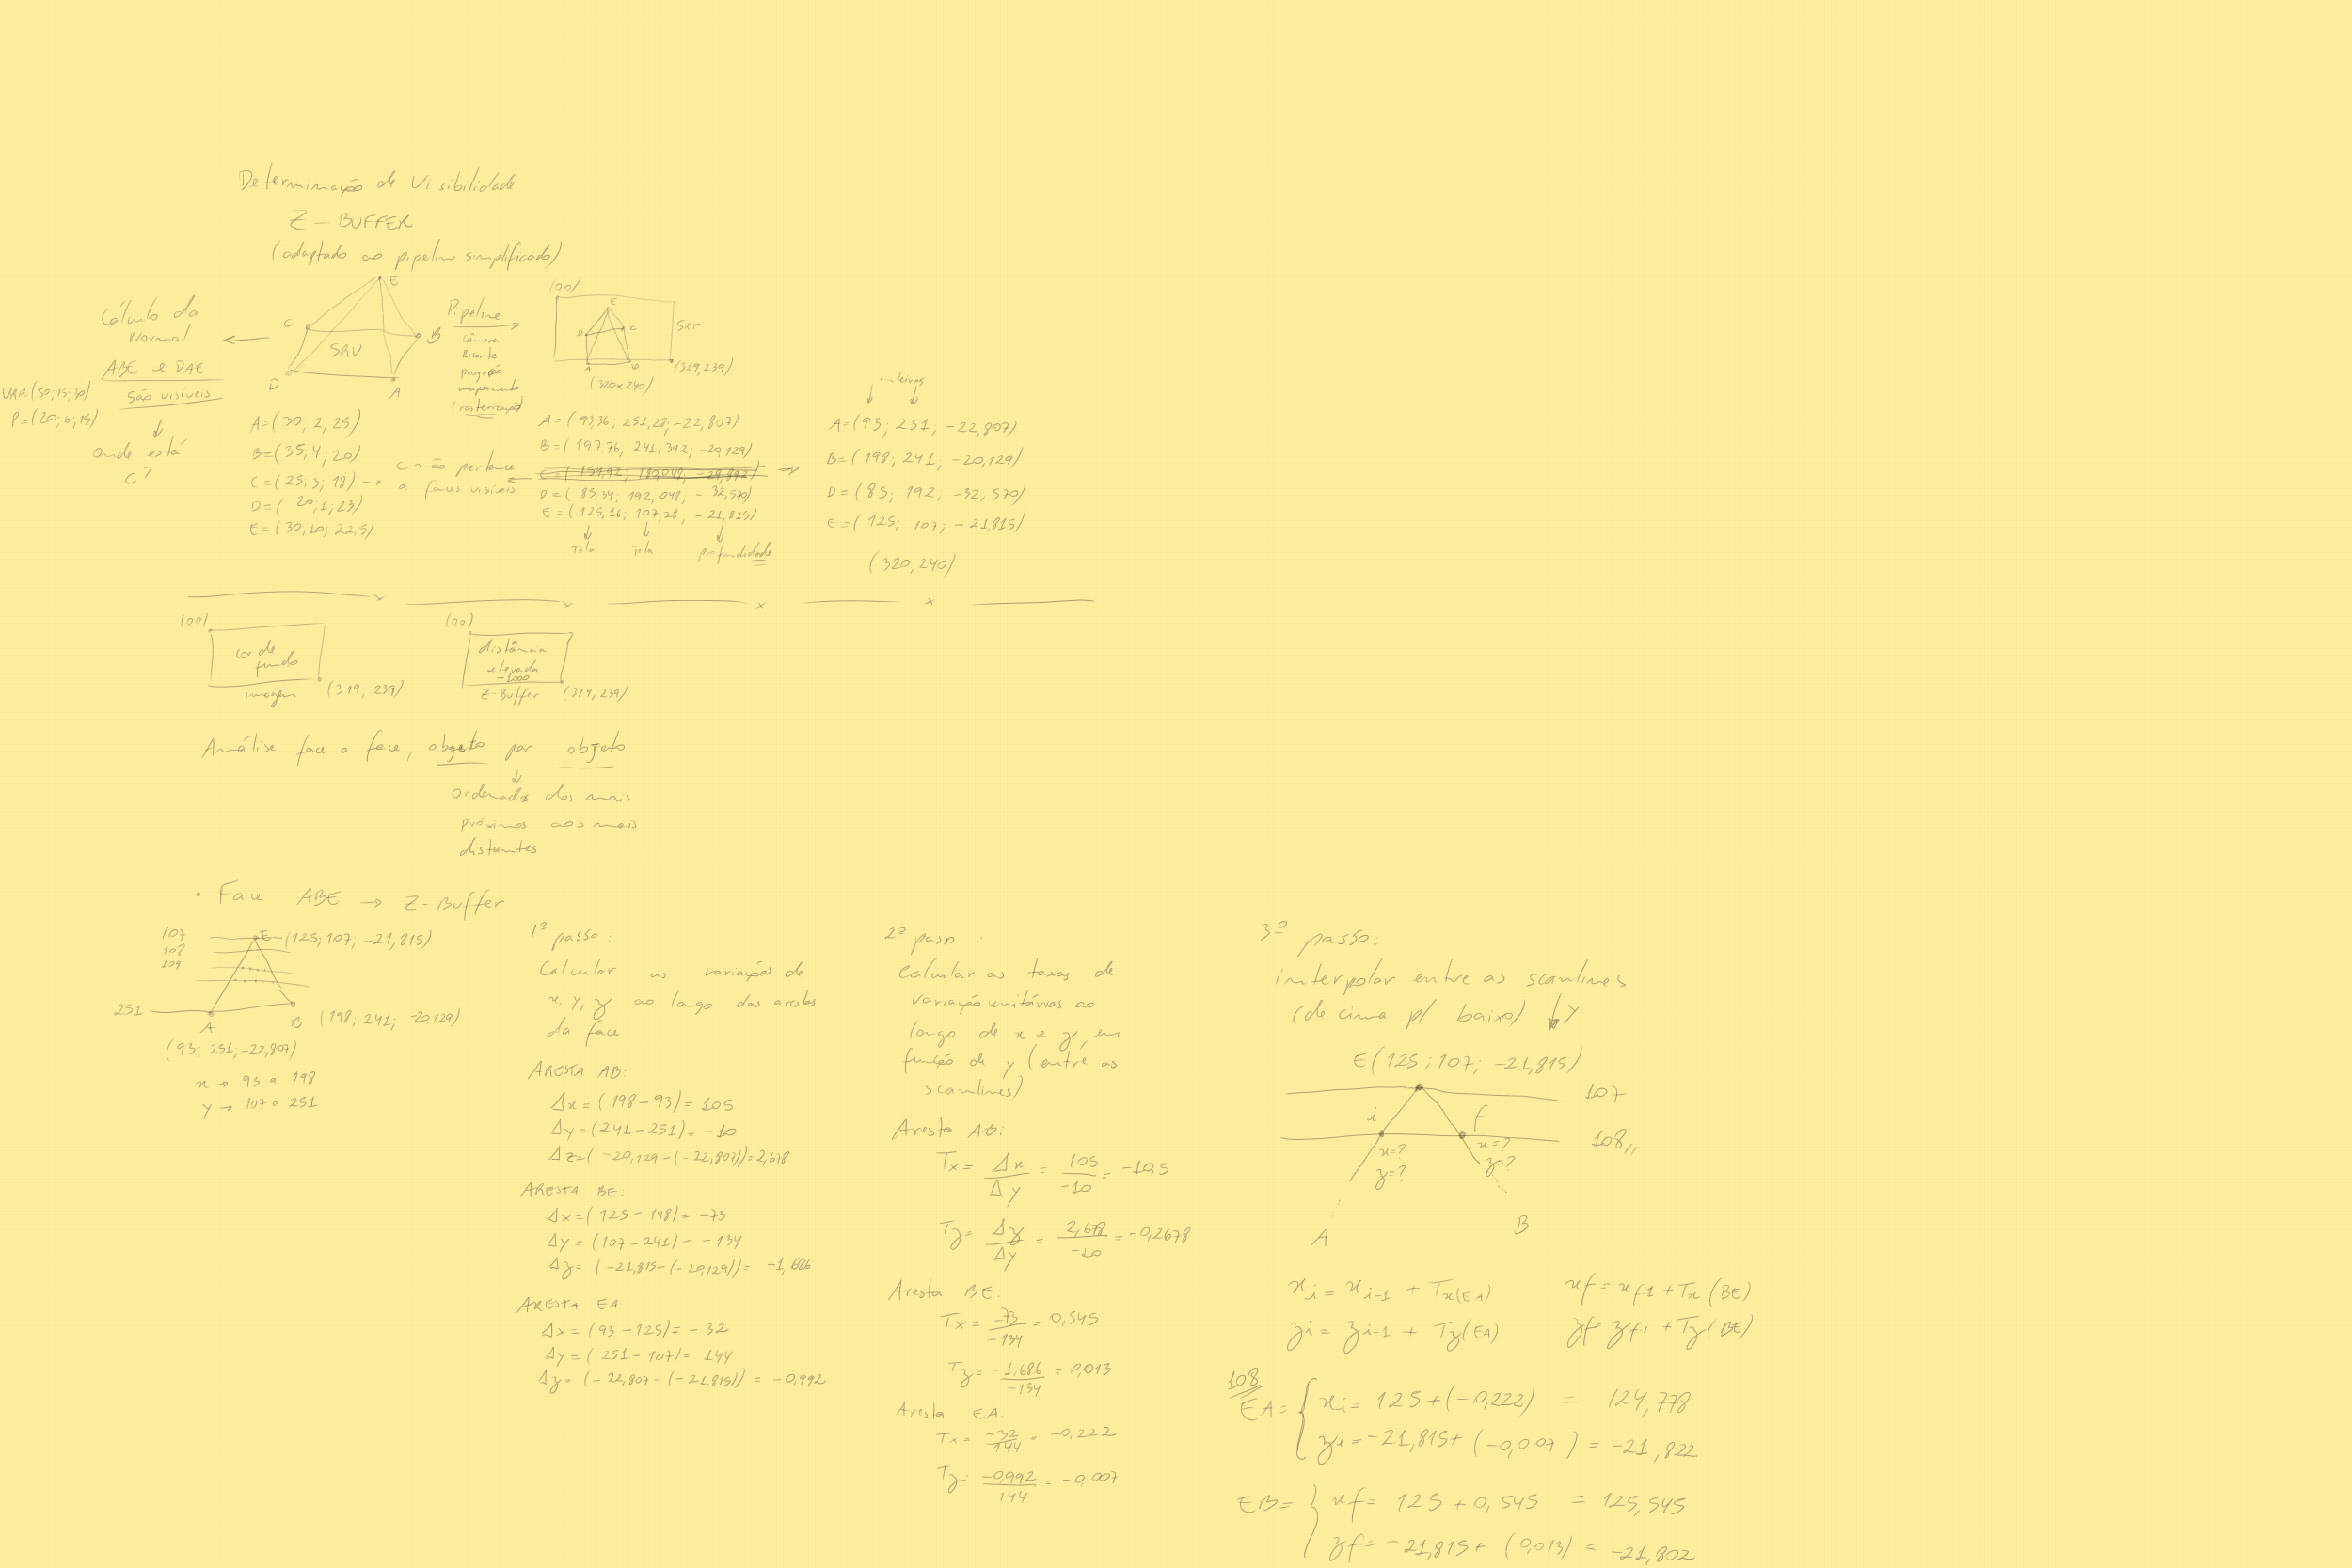 Determinação de Visibilidade
Z - BUFFER
(adaptado ao pipeline simplificado)
Cálculo da
Normal
ABE e DAE
são visíveis
Onde está
C?
VRP=(50; 15; 30)
P=(20; 6; 15)
E
C
B
SRU
D
A
A=(30; 2; 25)
B=(35; 4; 20)
C=(25; 3; 18)
D=(20; 1; 23)
E=(30; 10; 22,5)
C não pertence
a faces visíveis
Pipeline
câmera
Recorte
projeção
mapeamento
(rasterização)
(0,0)
E
D
C
A
B
SRT
(319,239)
(320x240)
A=(93,36; 251,28; -22,807)
B=(197,76; 241,392; -20,129)
D=(85,34; 192,048; -32,570)
E=(125,16; 107,28; -21,815)
Tela Tela profundidade
inteiros
A=(93; 251; -22,807)
B=(198; 241; -20,129)
D=(85; 192; -32,570)
E=(125; 107; -21,815)
(320,240)
(0,0)
cor de
fundo
imagem
(319; 239)
(0,0)
distância
elevada
-1000
Z-Buffer
(319,239)
Análise face a face, objeto por objeto
Ordenados dos mais
próximos aos mais
distantes
• Face ABE → Z-Buffer
107
108
109
251
E (125; 107; -21,815)
A
B (198; 241; -20,129)
(93; 251; -22,807)
x → 93 a 198
y → 107 a 251
1º passo:
Calcular as variações de
x, y, z ao longo das arestas
da face
ARESTA AB:
Δx=(198-93)=105
Δy=(241-251)=-10
Δz=(-20,129-(-22,807))=2,678
ARESTA BE:
Δx=(125-198)=-73
Δy=(107-241)=-134
Δz=(-21,815-(-20,129))=-1,686
ARESTA EA:
Δx=(93-125)=-32
Δy=(251-107)=144
Δz=(-22,807-(-21,815))=-0,992
2º passo:
Calcular as taxas de
variação unitárias ao
longo de x e z, em
função de y (entre as
scanlines)
Aresta AB:
Tx= Δx/Δy = 105/-10 = -10,5
Tz= Δz/Δy = 2,678/-10 = -0,2678
Aresta BE:
Tx= -73/-134 = 0,545
Tz= -1,686/-134 = 0,013
Aresta EA:
Tx= -32/144 = -0,222
Tz= -0,992/144 = -0,007
3º passo:
interpolar entre as scanlines
(de cima p/ baixo) ↓y
E(125; 107; -21,815)
107
i
f
108,,
x=?
z=?
x=?
z=?
A
B
xi= xi-1 + Tx(EA)
xf= xf-1 + Tx(BE)
zi= zi-1 + Tz(EA)
zf= zf-1 + Tz(BE)
108
EA= { xi= 125+(-0,222) = 124,778
zi= -21,815+(-0,007) = -21,822
EB= { xf= 125+0,545 = 125,545
zf= -21,815+(0,013) = -21,802